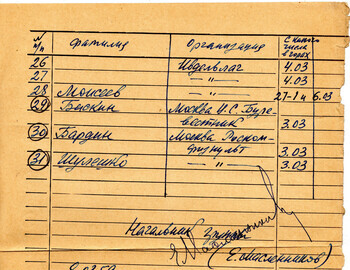 N п/п фамилия Организация С какого числа в горах
26 Ивдельлаг 4.03
27 —„— 4.03
28 Моисеев —„— 27-I и 6.03
29 Быскин Москва И.С. Буре-
вестник 3.03
30 Бардин Москва Роском-
физкульт 3.03
31 Шулешко —„— 3.03
Начальник
(Е. Масленников)